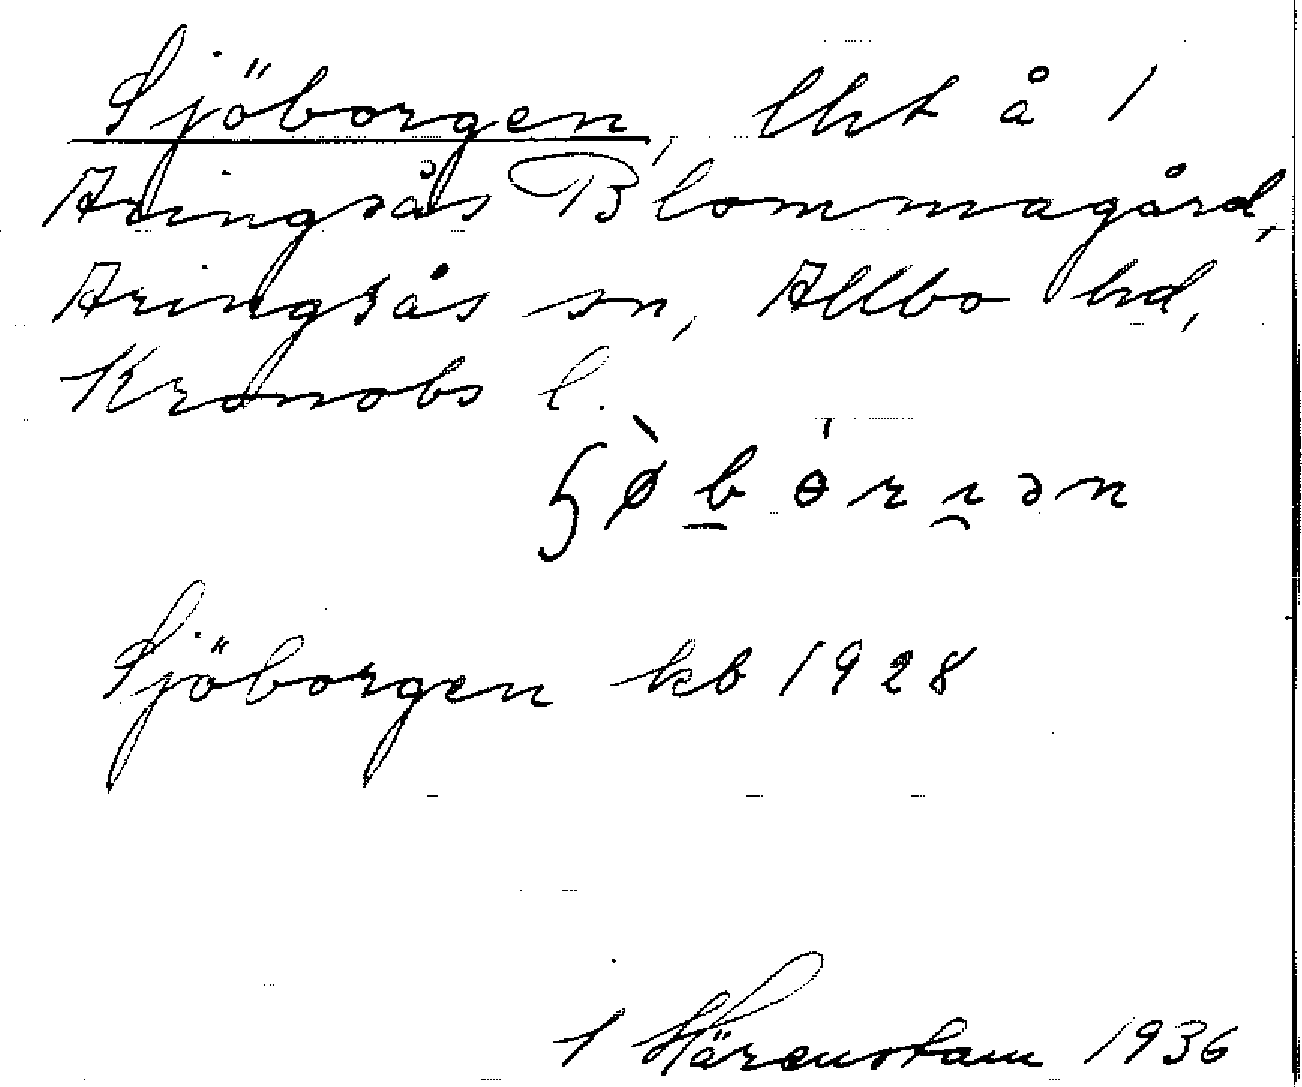 Sjöborgen, lht å 1
Aringsås Blommagård,
Aringsås sn, Allbo hd,
Kronobs l.
Sjöborgen kb 1928
Härenstam 1936